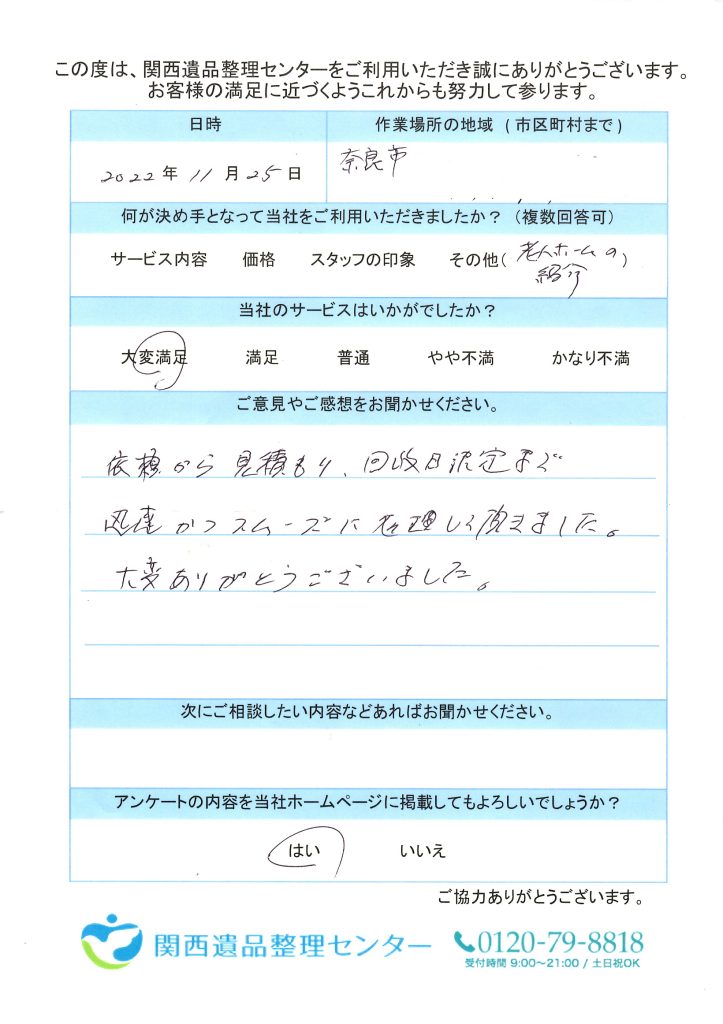 この度は、関西遺品整理センターをご利用いただき誠にありがとうございます。
お客様の満足に近づくようこれからも努力して参ります。
日時
作業場所の地域 (市区町村まで)
2022年 11月25日
奈良市
何が決め手となって当社をご利用いただきましたか？（複数回答可）
サービス内容 価格 スタッフの印象 その他(老人ホームの
紹介)
当社のサービスはいかがでしたか？
大変満足 満足 普通 やや不満 かなり不満
ご意見やご感想をお聞かせください。
依頼から見積もり、回収日決定まで
迅速かつスムーズに処理して頂きました。
大変ありがとうございました。
次にご相談したい内容などあればお聞かせください。
アンケートの内容を当社ホームページに掲載してもよろしいでしょうか？
はい いいえ
ご協力ありがとうございます。
関西遺品整理センター
0120-79-8818
受付時間 9:00～21:00 / 土日祝OK